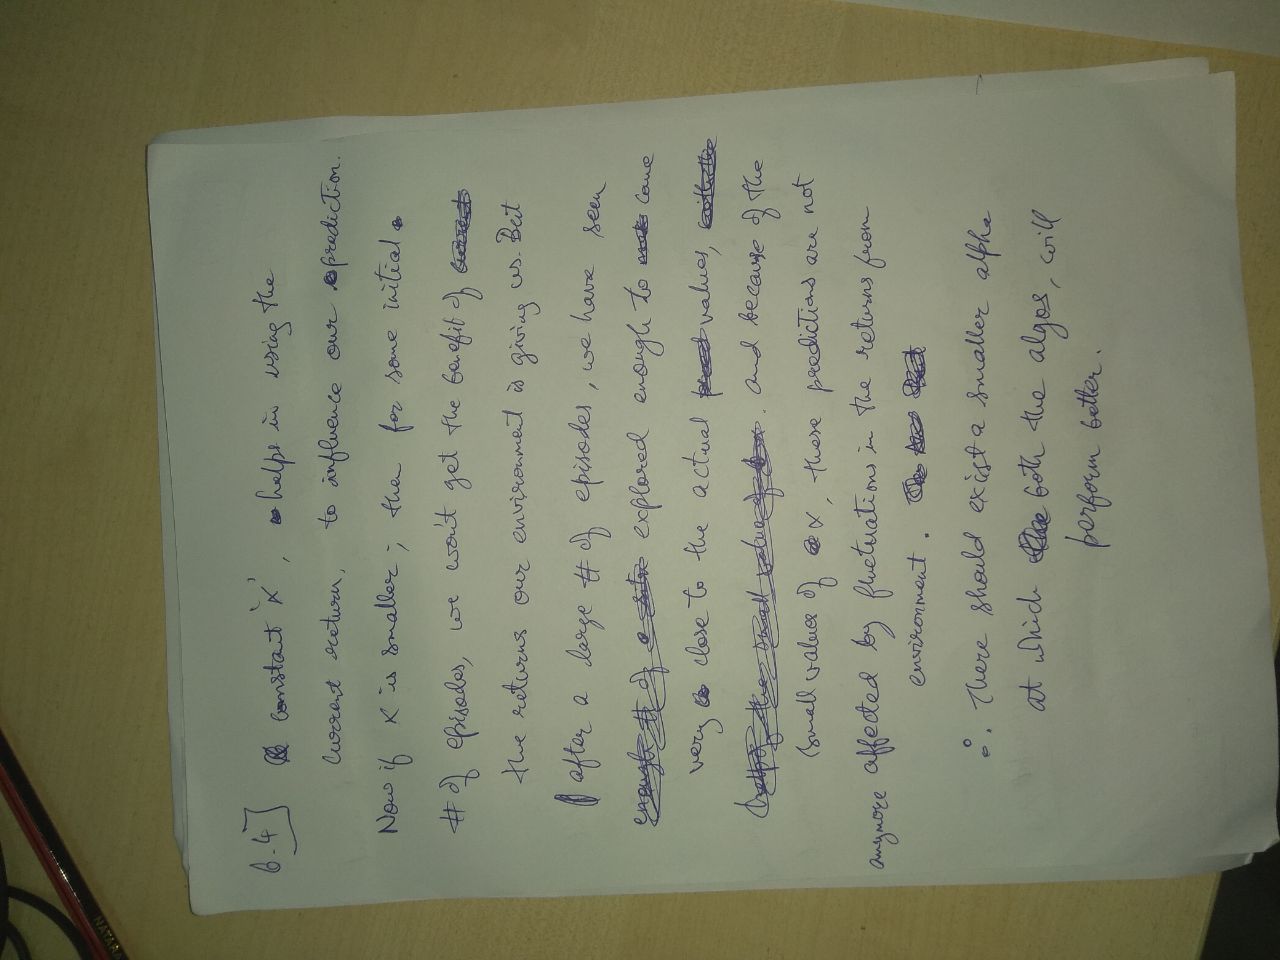 6.4] constant 'α', helps in using the
current return, to influence our prediction.
Now if α is smaller, then for some initial
# of episodes, we won't get the benefit of
the returns our environment is giving us. But
after a large # of episodes, we have seen
explored enough to come
very close to the actual values,
. and because of the
small values of α, these predictions are not
anymore affected by fluctuations in the returns from
environment.
∴ There should exist a smaller alpha
at which both the algos, will
perform better.
NATARA